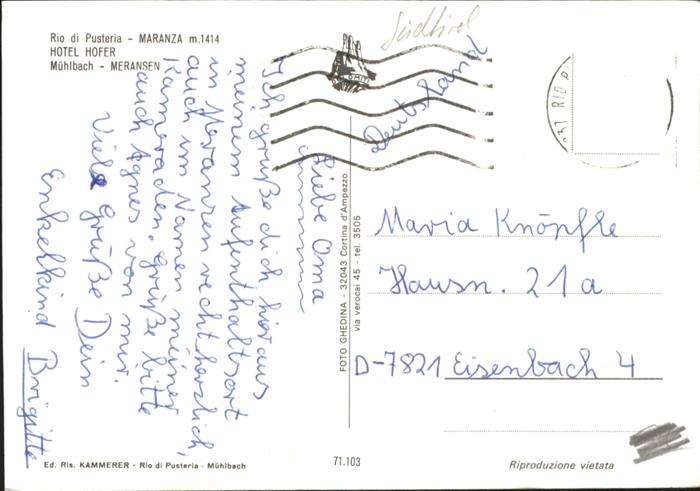 Rio di Pusteria - MARANZA m.1414
HOTEL HOFER
Mühlbach - MERANSEN
Südtirol
Deutschland
Liebe Oma
Ich grüße dich hieraus
meinem Aufenthaltsort
in Maranzen recht herzlich,
auch im Namen meiner
Kameraden. grüße bitte
auch Agnes von mir.
Viele grüße Dein
Enkelkind Brigitte
FOTO GHEDINA - 32043 Cortina d'Ampezzo
via verocai 45 - tel. 3505
Maria Knöpfle
Hausn. 21a
D-7821 Eisenbach 4
Ed. Ris. KAMMERER - Rio di Pusteria - Mühlbach
71.103
Riproduzione vietata